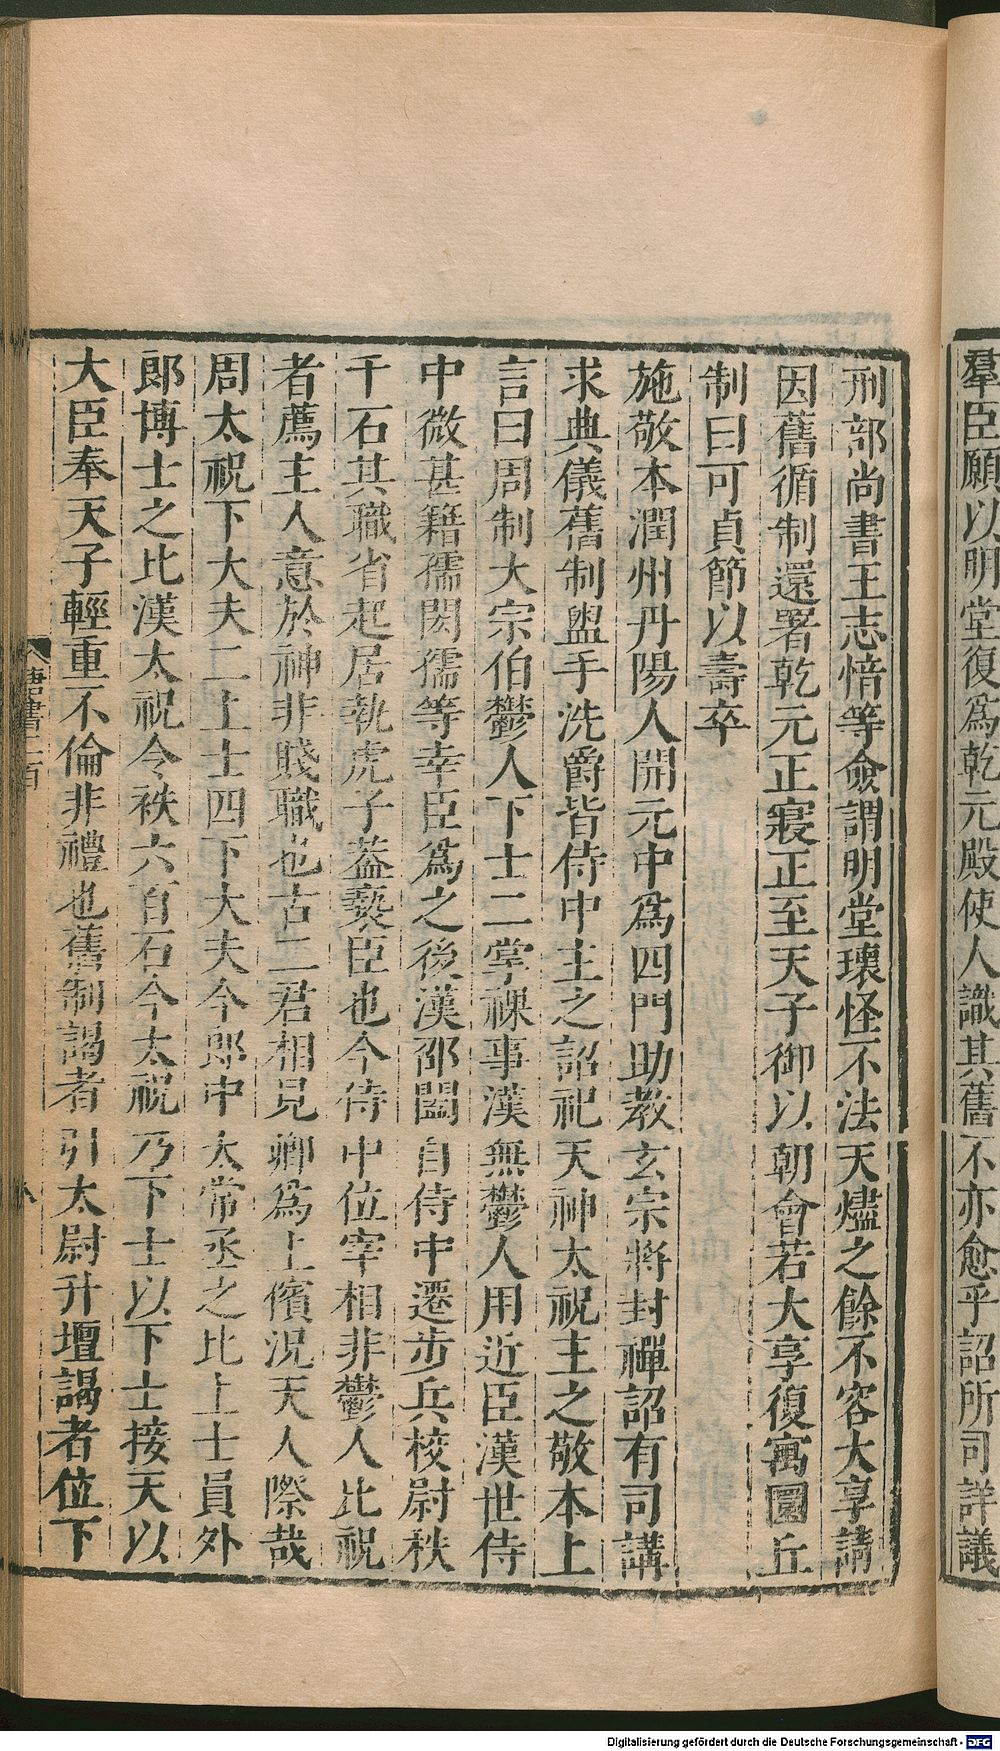 羣臣願以明堂復爲乾元殿使人識其舊不亦愈乎詔所司詳議
刑部尚書王志愔等僉謂明堂瓌怪不法天燼之餘不容大享請
因舊循制還署乾元正寢正至天子御以朝會若大享復寓圜丘
制曰可貞節以壽卒
施敬本潤州丹陽人開元中爲四門助教玄宗將封禪詔有司講
求典儀舊制盥手洗爵皆侍中主之詔祀天神太祝主之敬本上
言曰周制大宗伯鬱人下士二掌祼事漢無鬱人用近臣漢世侍
中微甚籍孺閎孺等幸臣爲之後漢邵闔自侍中遷步兵校尉秩
千石其職省起居執虎子蓋褻臣也今侍中位宰相非鬱人比祝
者薦主人意於神非賤職也古二君相見卿爲上儐況天人際哉
周太祝下大夫二上士四下大夫今郎中太常丞之比上士員外
郎博士之比漢太祝令秩六百石今太祝乃下士以下士接天以
大臣奉天子輕重不倫非禮也舊制謁者引太尉升壇謁者位下
唐書二百
八
Digitalisierung gefördert durch die Deutsche Forschungsgemeinschaft - DFG